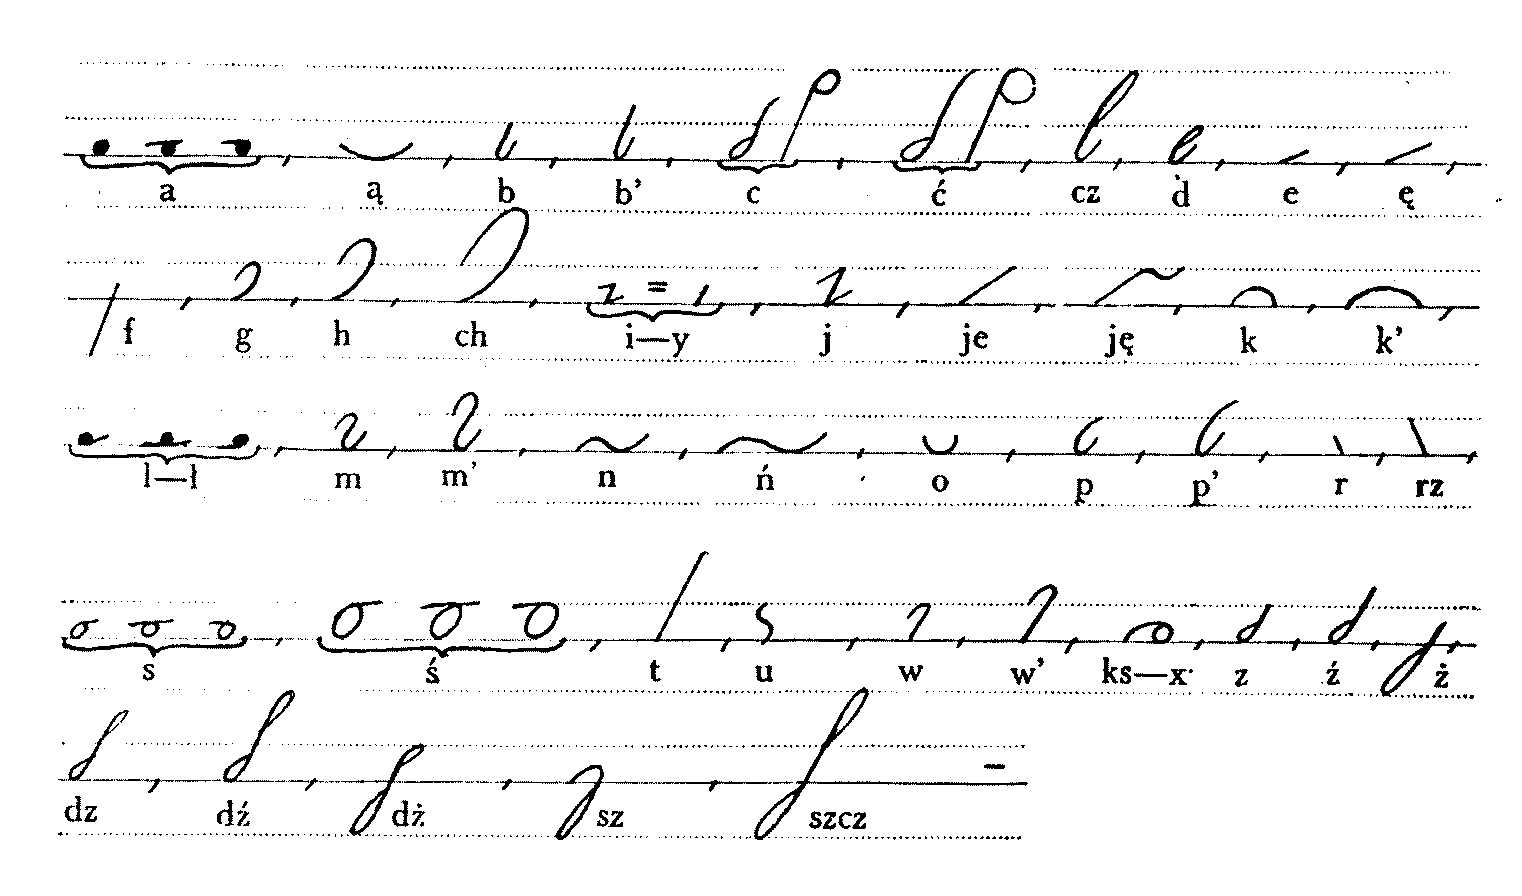 a ą b b’ c ć cz d e ę
f g h ch i—y j je ję k k’
l—ł m m’ n ń o p p’ r rz
s ś t u w w’ ks—x z ź ż
dz dź dż sz szcz